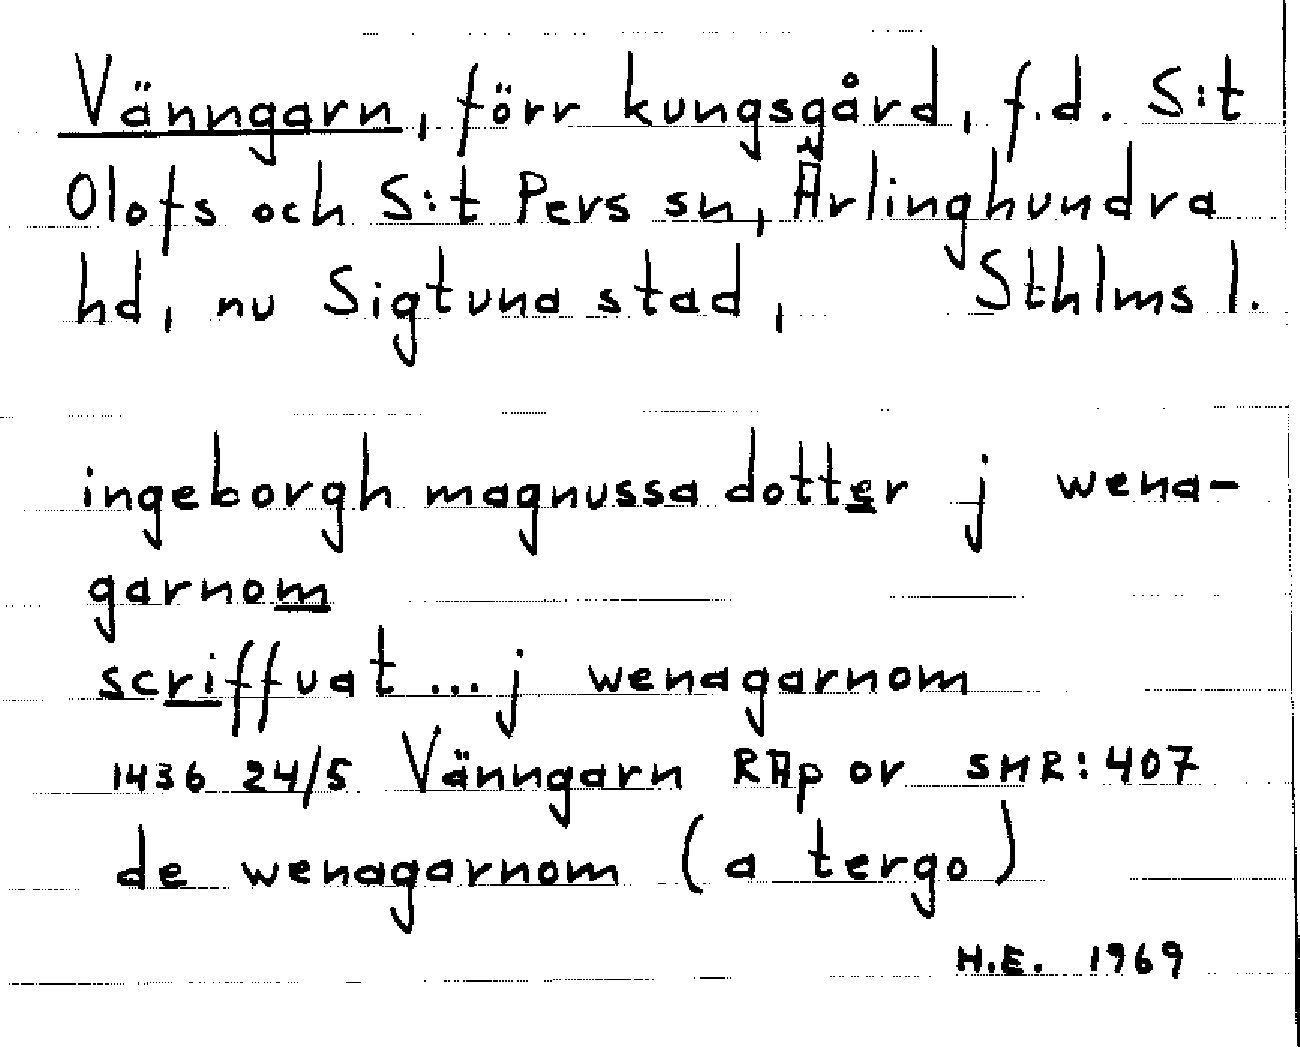 Vänngarn, förr kungsgård, f.d. S:t
Olofs och S:t Pers sn, Ärlinghundra
hd, nu Sigtuna stad, Sthlms l.
ingeborgh magnussa dotter j wena-
garnom
scriffuat... j wenagarnom
1436 24/5 Vänngarn RAp or SMR:407
de wenagarnom (a tergo)
H.E. 1969